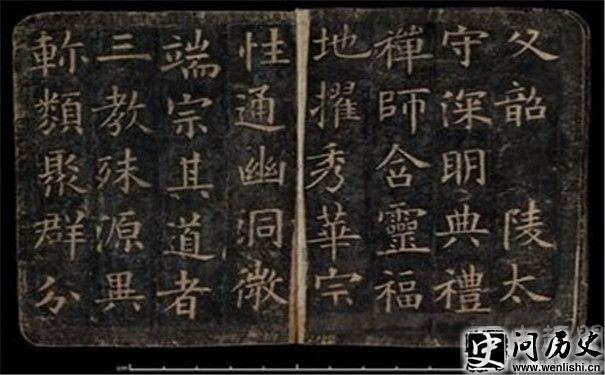 父韶 陵太
守深明典禮
禪師含靈福
地擢秀華宗
性通幽洞微
端宗其道者
三教殊源異
軫類聚群分
问历史
www.wenlishi.cn